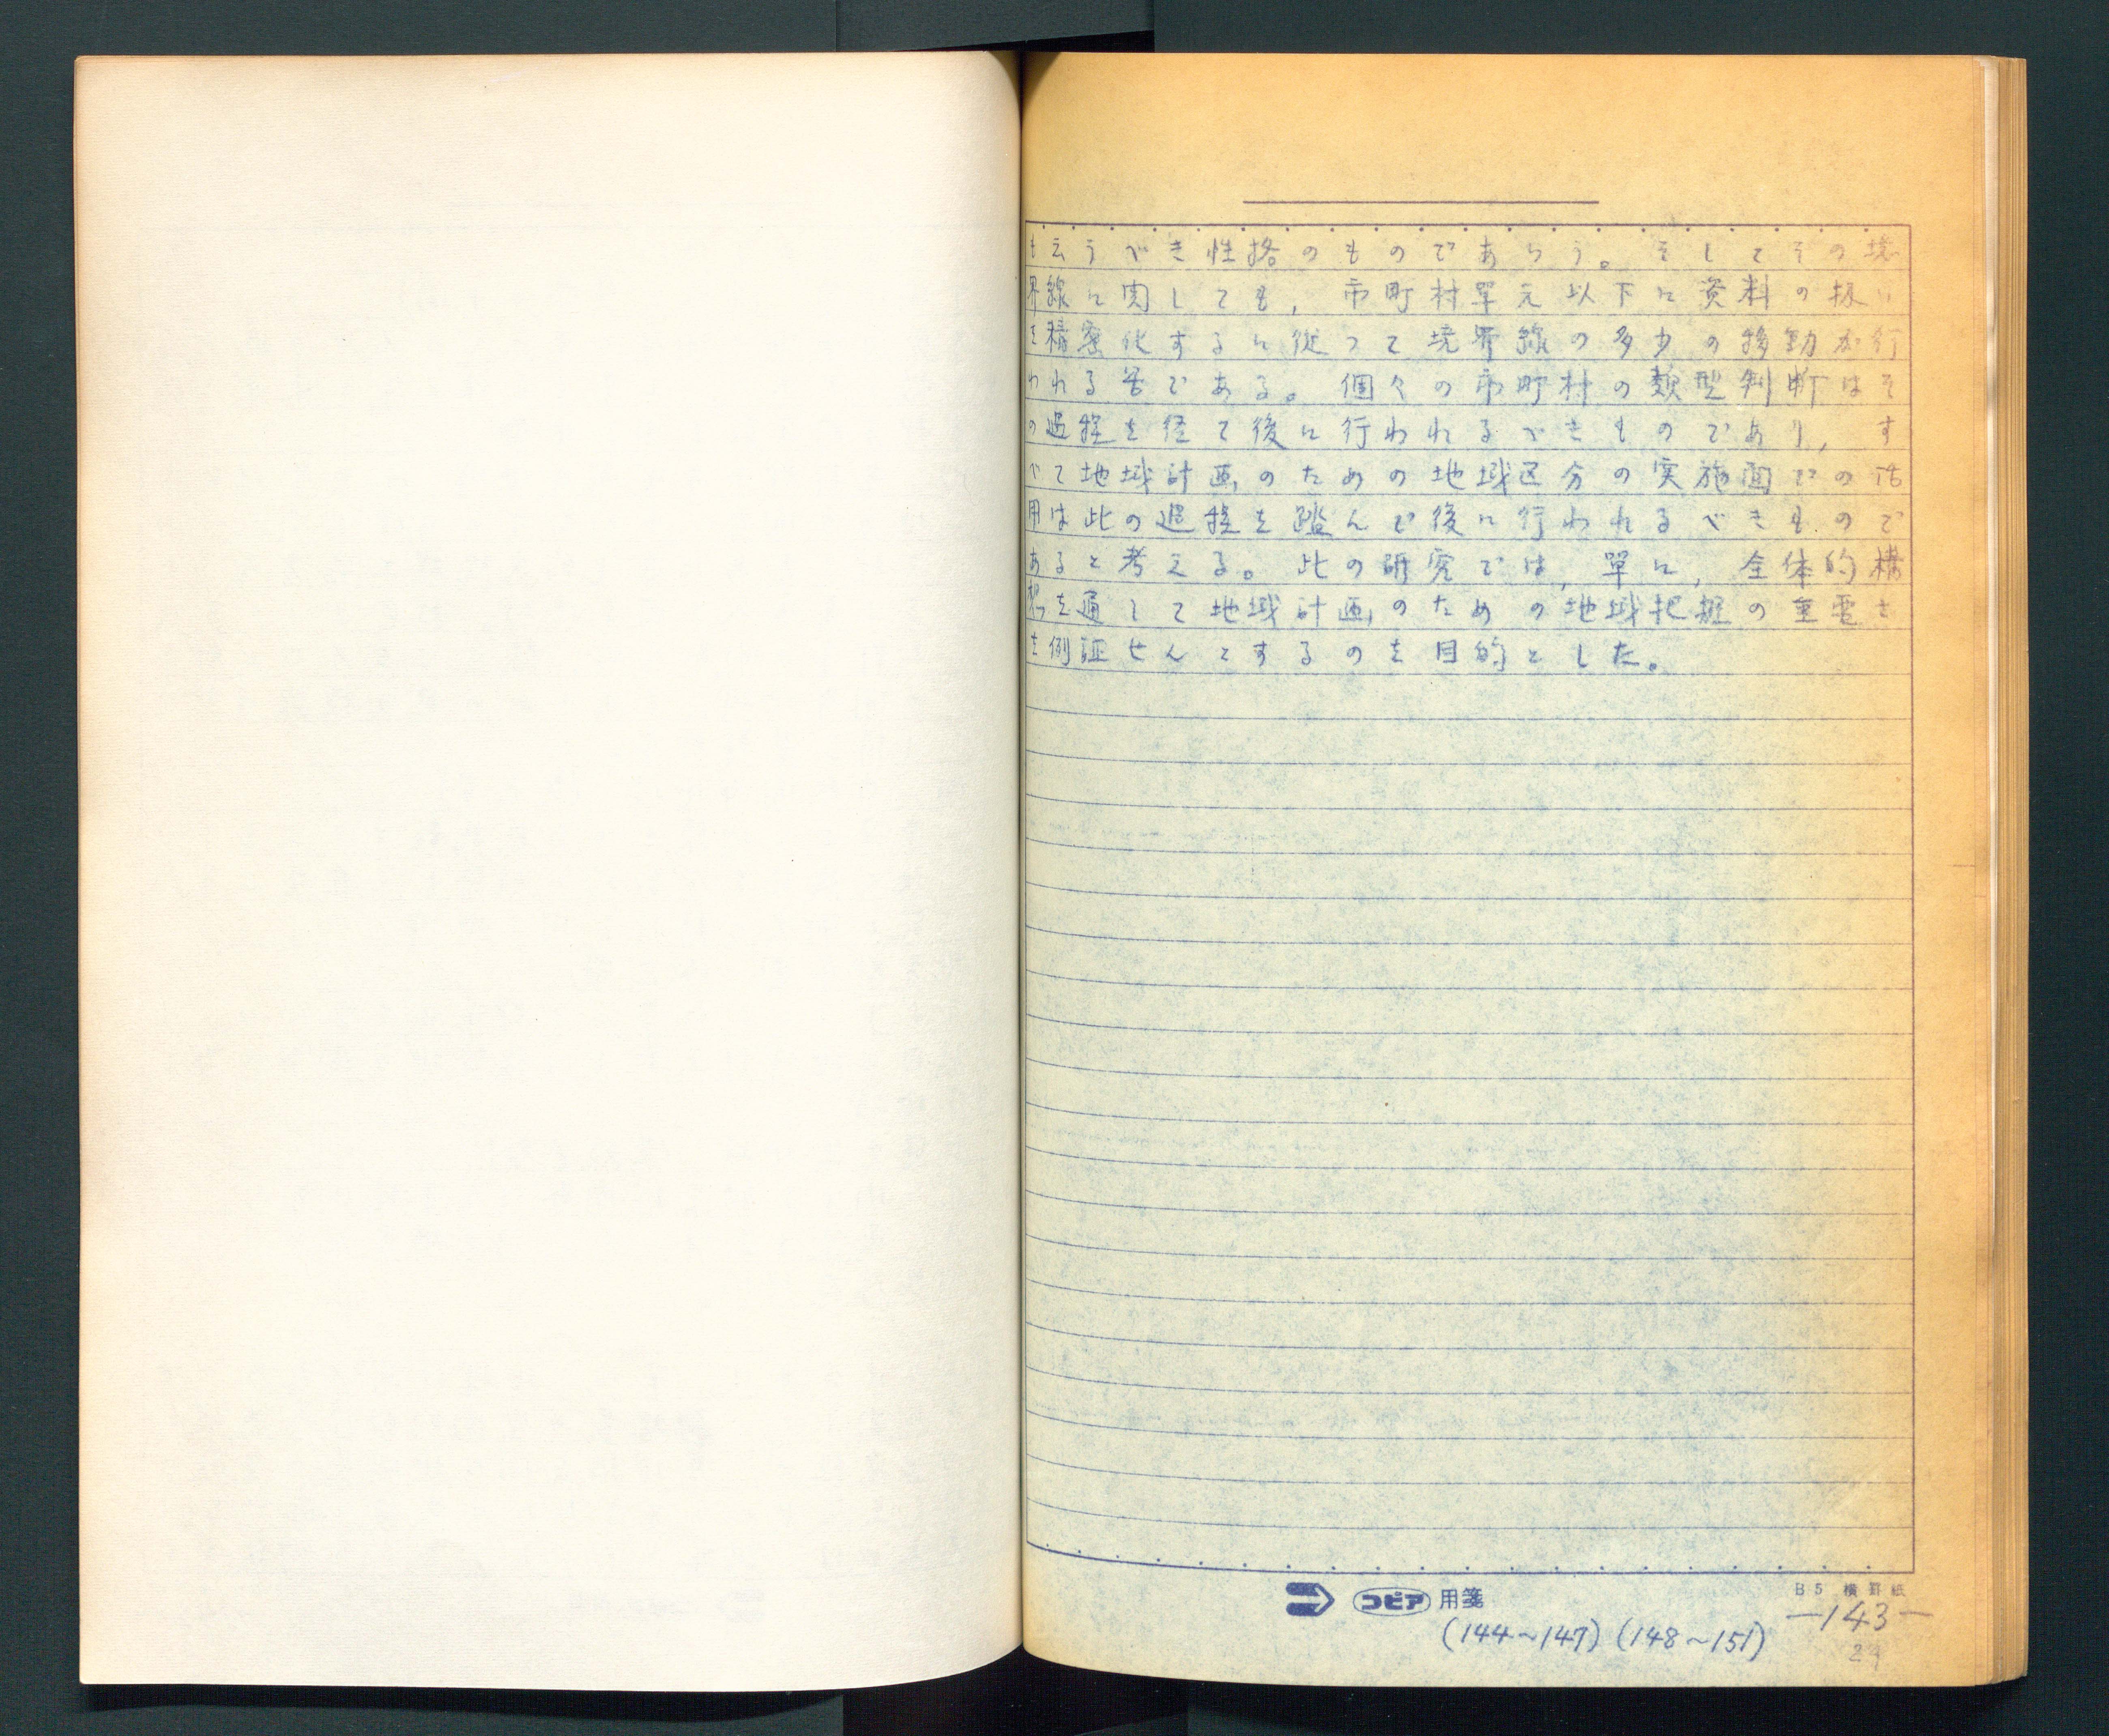 も云うべき性格のものであらう。そしてその境
界線に関しても，市町村單元以下に資料の扱い
を精密化するに従つて境界線の多少の移動が行
われる筈である。個々の市町村の類型判断はそ
の過程を経て後に行われるべきものであり，す
べて地域計画のための地域区分の実施面での活
用は此の過程を踏んで後に行われるべきもので
あると考える。此の研究では，單に，全体的構
想を通して地域計画のための地域把握の重要さ
を例証せんとするのを目的とした。
コピア用箋
B5 横罫紙
(144～147) (148～151)
—143—
29